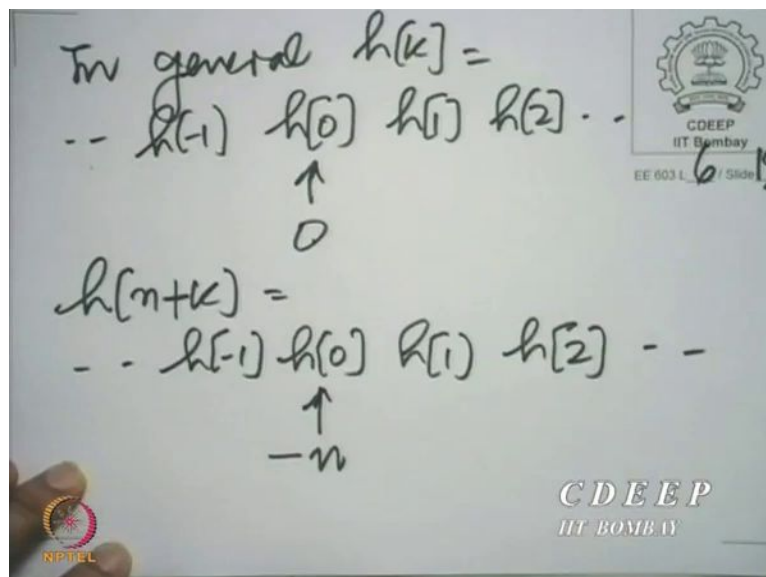 In general h[k] =
-- h[-1] h[0] h[1] h[2] --
↑
0
h[n+k] =
-- h[-1] h[0] h[1] h[2] --
↑
-n
CDEEP
IIT Bombay
EE 603 L 6 / Slide
CDEEP
IIT BOMBAY
NPTEL